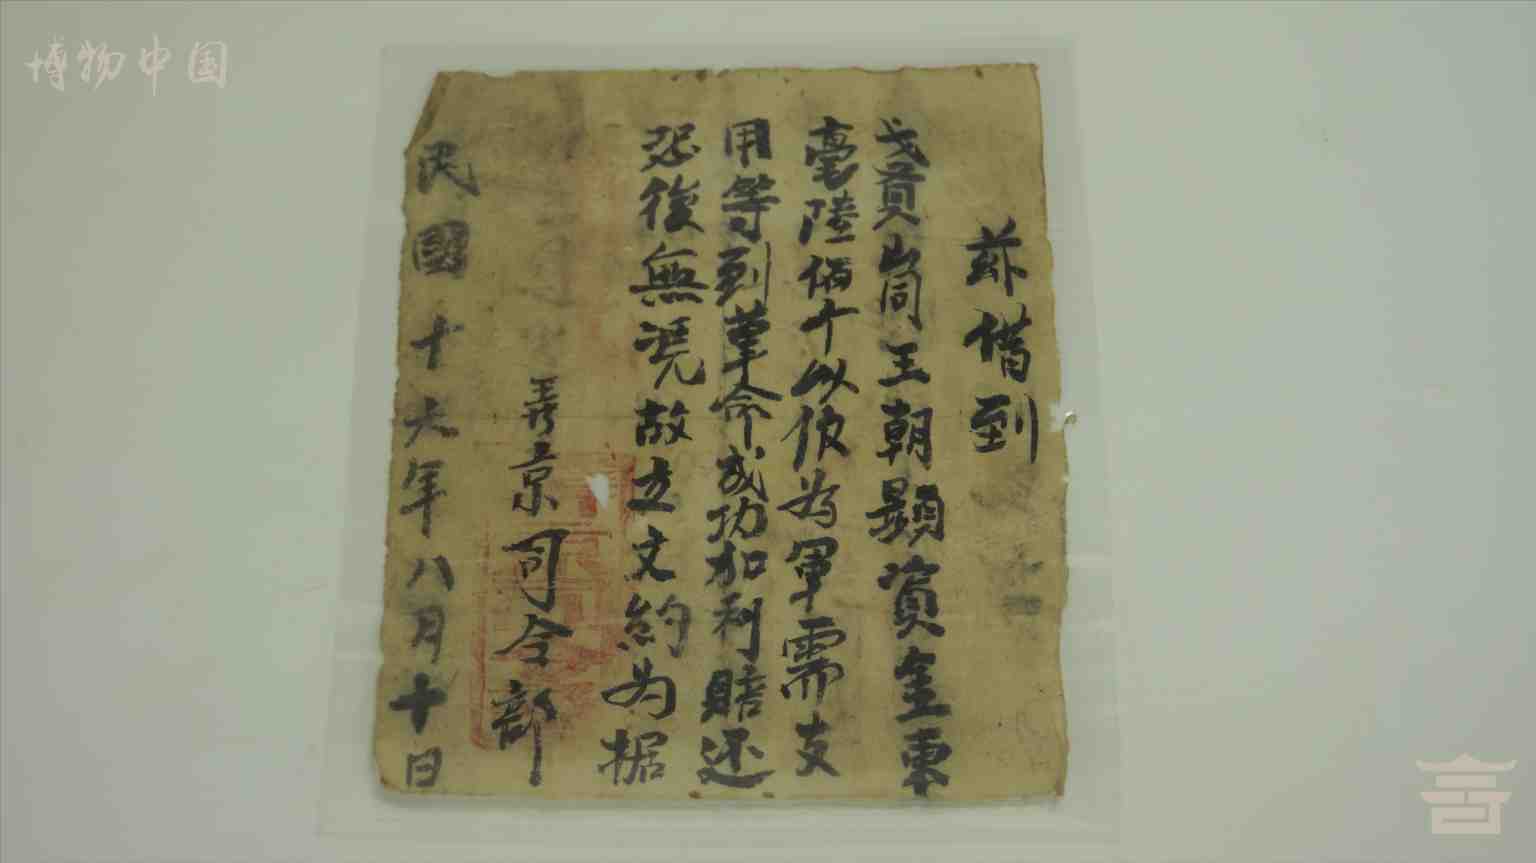 博物中国
茲借到
戈賚山同王朝顯資金東
毫陸佰十以依為軍需支
用等到革命成功加利賠还
恐後無凭故立文約为据
景司令部
民國十六年八月十日